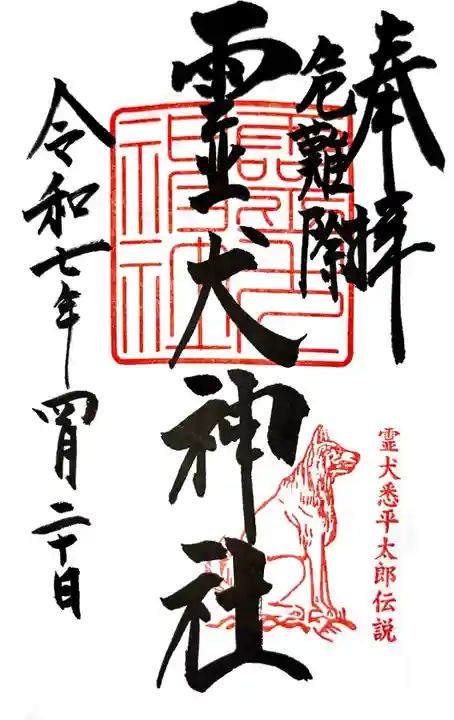 奉拝
危難除
霊犬神社
霊犬悉平太郎伝説
令和七年四月二十日